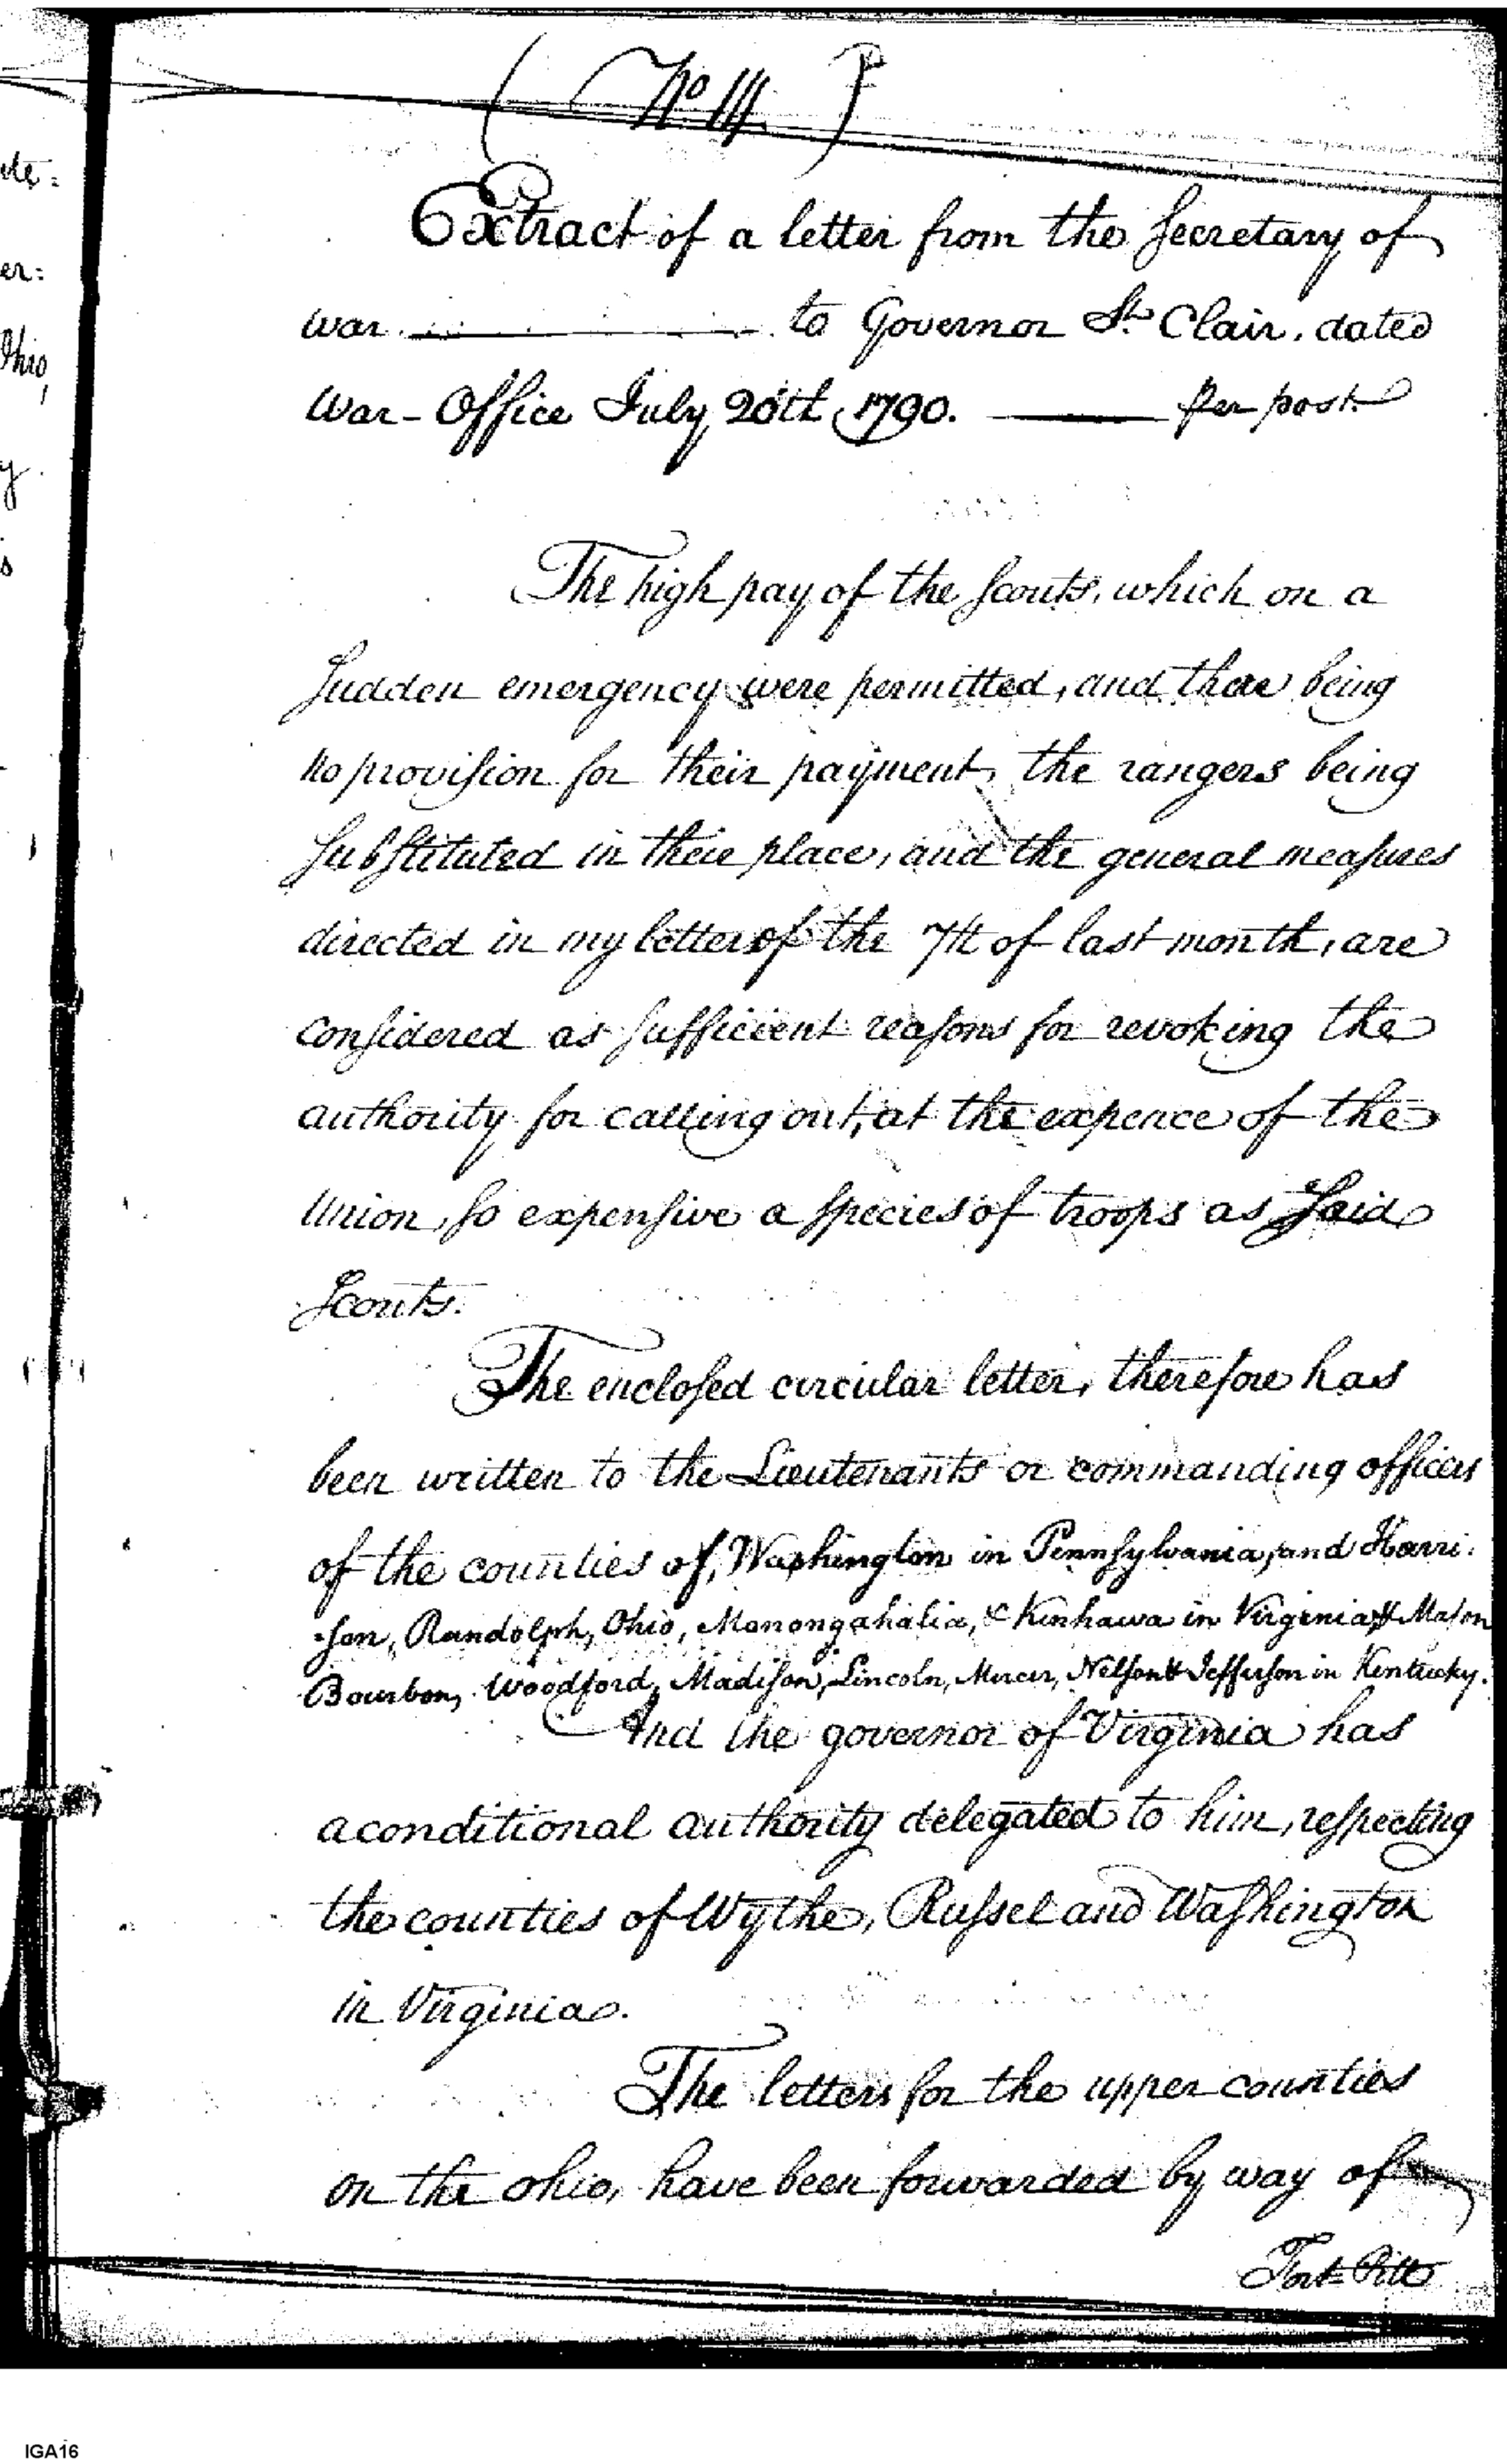 (No. 14.)
Extract of a letter from the Secretary of
War to Governor St. Clair, dated
War-Office July 20th 1790. Per post
The high pay of the Scouts, which on a
Sudden emergency were permitted, and there being
no provision for their payment, the rangers being
Substituted in their place, and the general measures
directed in my letter of the 7th of last month, are
considered as sufficient reasons for revoking the
authority for calling out, at the expence of the
Union, so expensive a species of troops as Said
Scouts.
The enclosed circular letter, therefore has
been written to the Lieutenants or commanding officers
of the counties of, Washington in Pennsylvania, and Harri-
-son, Randolph, Ohio, Monongahalia, & Kenhawa in Virginia, & Mason
Bourbon, Woodford, Madison, Lincoln, Mercer, Nelson & Jefferson in Kentucky.
And the governor of Virginia has
a conditional authority delegated to him, respecting
the counties of Wythe, Russel and Washington
in Virginia.
The letters for the upper counties
on the Ohio, have been forwarded by way of
Fort-Pitt
IGA16